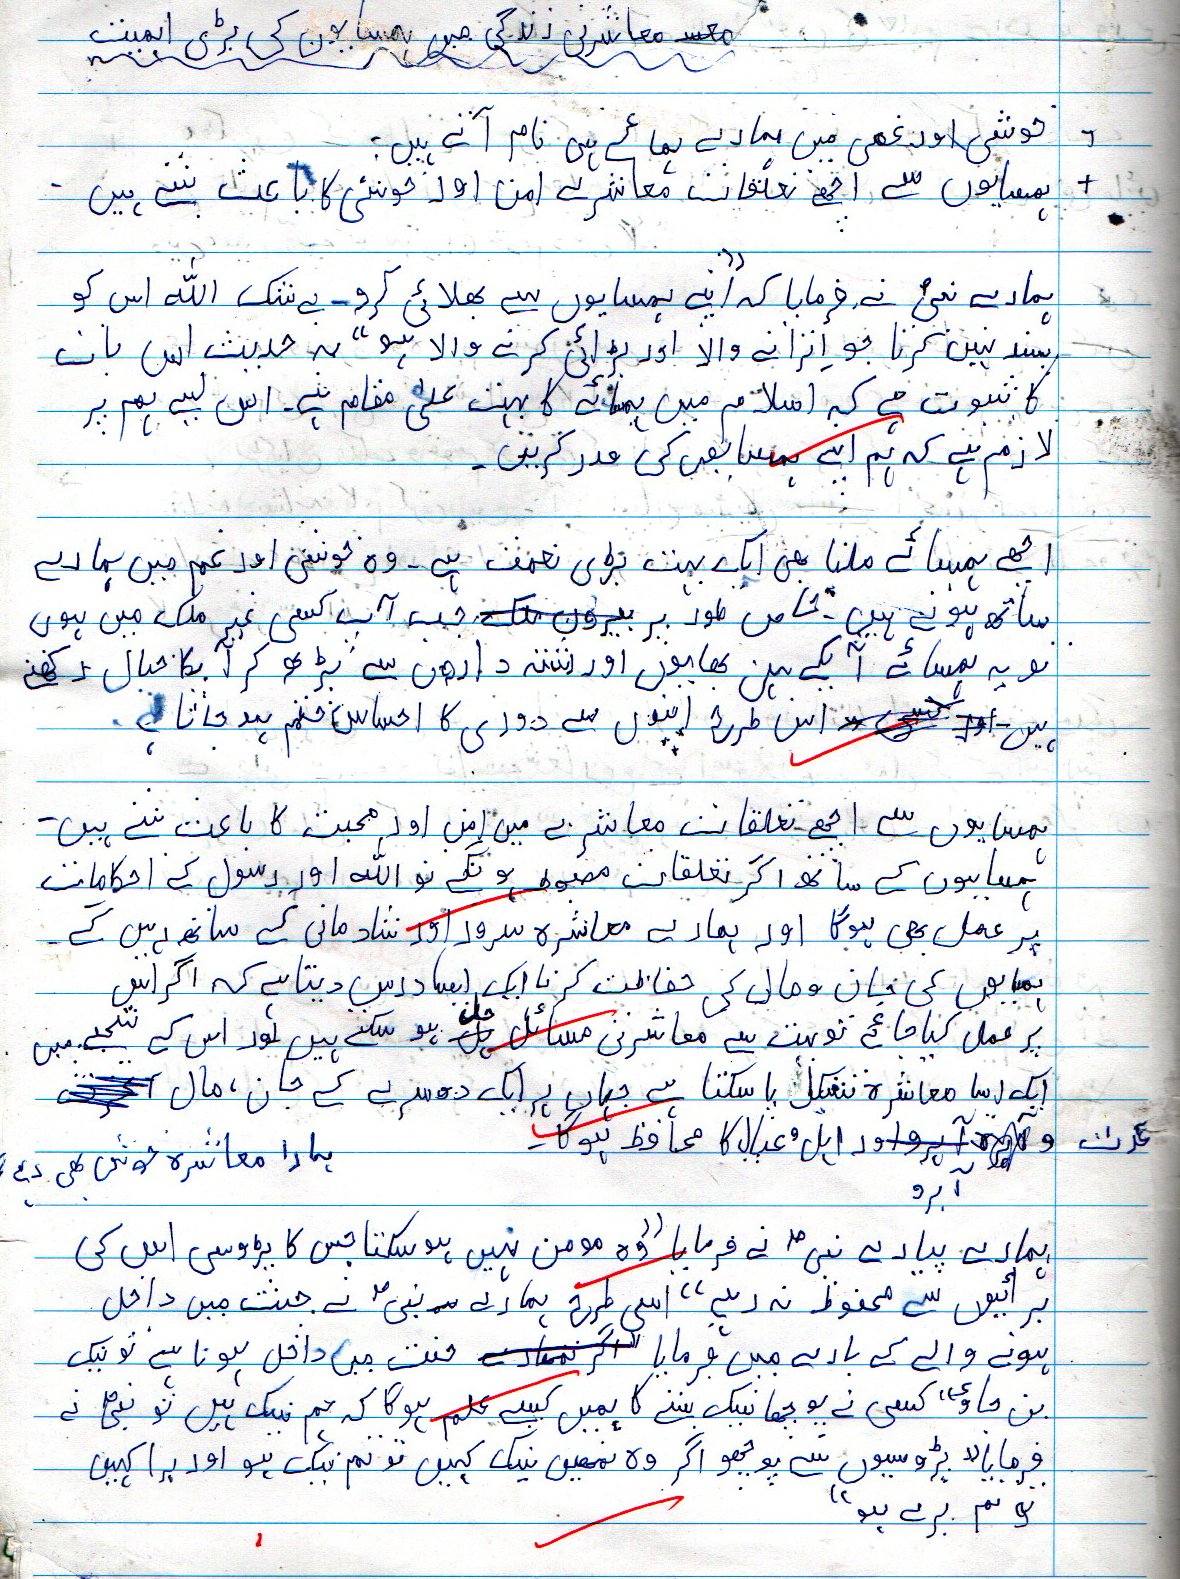 معاشرتی زندگی میں ہمسایوں کی بڑی اہمیت
خوشی اور غمی میں ہمارے ہمسائے ہی کام آتے ہیں۔
+ ہمسایوں سے اچھے تعلقات معاشرے امن اور خوشی کا باعث بنتے ہیں -
ہمارے نبیؐ نے فرمایا کہ "اپنے ہمسایوں سے بھلائی کرو۔ بے شک اللہ اس کو
پسند نہیں کرتا جو اترانے والا اور بڑائی کرنے والا ہو" یہ حدیث اس بات
کا ثبوت ہے کہ اسلام میں ہمسائے کا بہت علیٰ مقام ہے۔ اس لیے ہم پر
لازم ہے کہ ہم اپنے ہمسایوں کی مدد کریں۔
اچھے ہمسائے ملنا بھی ایک بہت بڑی نعمت ہے۔ وہ خوشی اور غم میں ہمارے
ساتھ ہوتے ہیں۔ خاص طور پر جب آپ کسی غیر ملک میں ہوں
تو یہ ہمسائے آپکے بہن بھایوں اور رشتہ داروں سے بڑھ کر آپکا خیال رکھتے
ہیں۔ اس طرح اپنوں سے دوری کا احساس ختم ہو جاتا ہے۔
ہمسایوں سے اچھے تعلقات معاشرے میں امن اور محبت کا باعث بنتے ہیں۔
ہمسایوں کے ساتھ اگر تعلقات مضبوط ہونگے تو اللہ اور رسول کے احکامات
پر عمل بھی ہوگا اور ہمارے معاشرہ سرور اور شادمانی کے ساتھ رہیں گے۔
ہمسایوں کی جان ومال کی حفاظت کرنا ایک ایسا درس دیتا ہے کہ اگر اس
پر عمل کیا جائے تو بہت سے معاشرتی مسائل حل ہو سکتے ہیں اور اس کے نتیجے میں
ایک ایسا معاشرہ تشکیل پا سکتا ہے جہاں ہر ایک دوسرے کے جان، مال
عزت و آبرو اور اہل و عیال کا محافظ ہوگا۔
ہمارا معاشرہ خوش بھی رہے
ہمارے پیارے نبیؐ نے فرمایا "وہ مومن نہیں ہو سکتا جس کا پڑوسی اس کی
برائیوں سے محفوظ نہ رہے" اسی طرح ہمارے نبیؐ نے جنت میں داخل
ہونے والے کے بارے میں فرمایا "اگر جنت میں داخل ہونا ہے تو نیک
بن جاؤ" کسی نے پوچھا نیک بننے کا ہمیں کیسے علم ہوگا کہ ہم نیک ہیں تو نبیؐ نے
فرمایا "پڑوسیوں سے پوچھو اگر وہ تمہیں نیک کہیں تو تم نیک ہو اور برا کہیں
تو تم برے ہو"